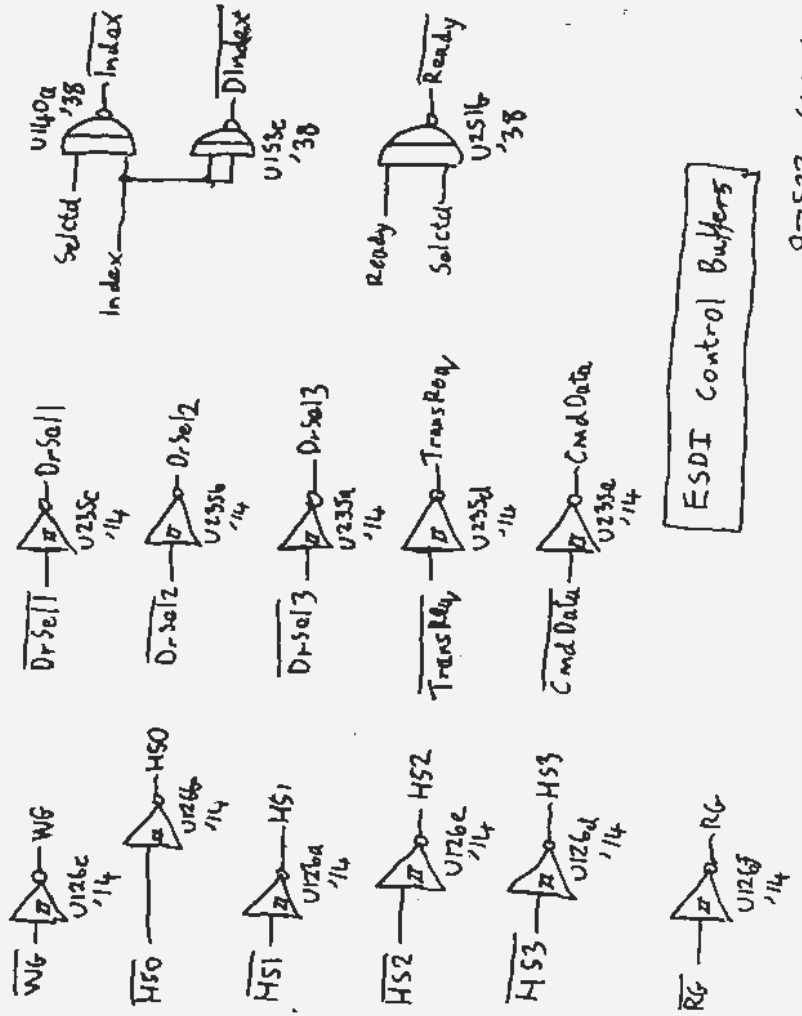 W̅G̅ WG
U126c
'14
H̅S̅0̅ HS0
U126b
'14
H̅S̅1̅ HS1
U126a
'14
H̅S̅2̅ HS2
U126e
'14
H̅S̅3̅ HS3
U126d
'14
R̅G̅ RG
U126f
'14
D̅r̅S̅e̅l̅1̅ DrSel1
U235c
'14
D̅r̅S̅e̅l̅2̅ DrSel2
U235b
'14
D̅r̅S̅e̅l̅3̅ DrSel3
U235a
'14
T̅r̅a̅n̅s̅R̅e̅q̅ TransReq
U235d
'14
C̅m̅d̅D̅a̅t̅a̅ CmdData
U235e
'14
U140a
'38
Selctd
Index
I̅n̅d̅e̅x̅
D̅I̅n̅d̅e̅x̅
U153c
'38
Ready
Selctd
R̅e̅a̅d̅y̅
U251b
'38
ESDI Control Buffers